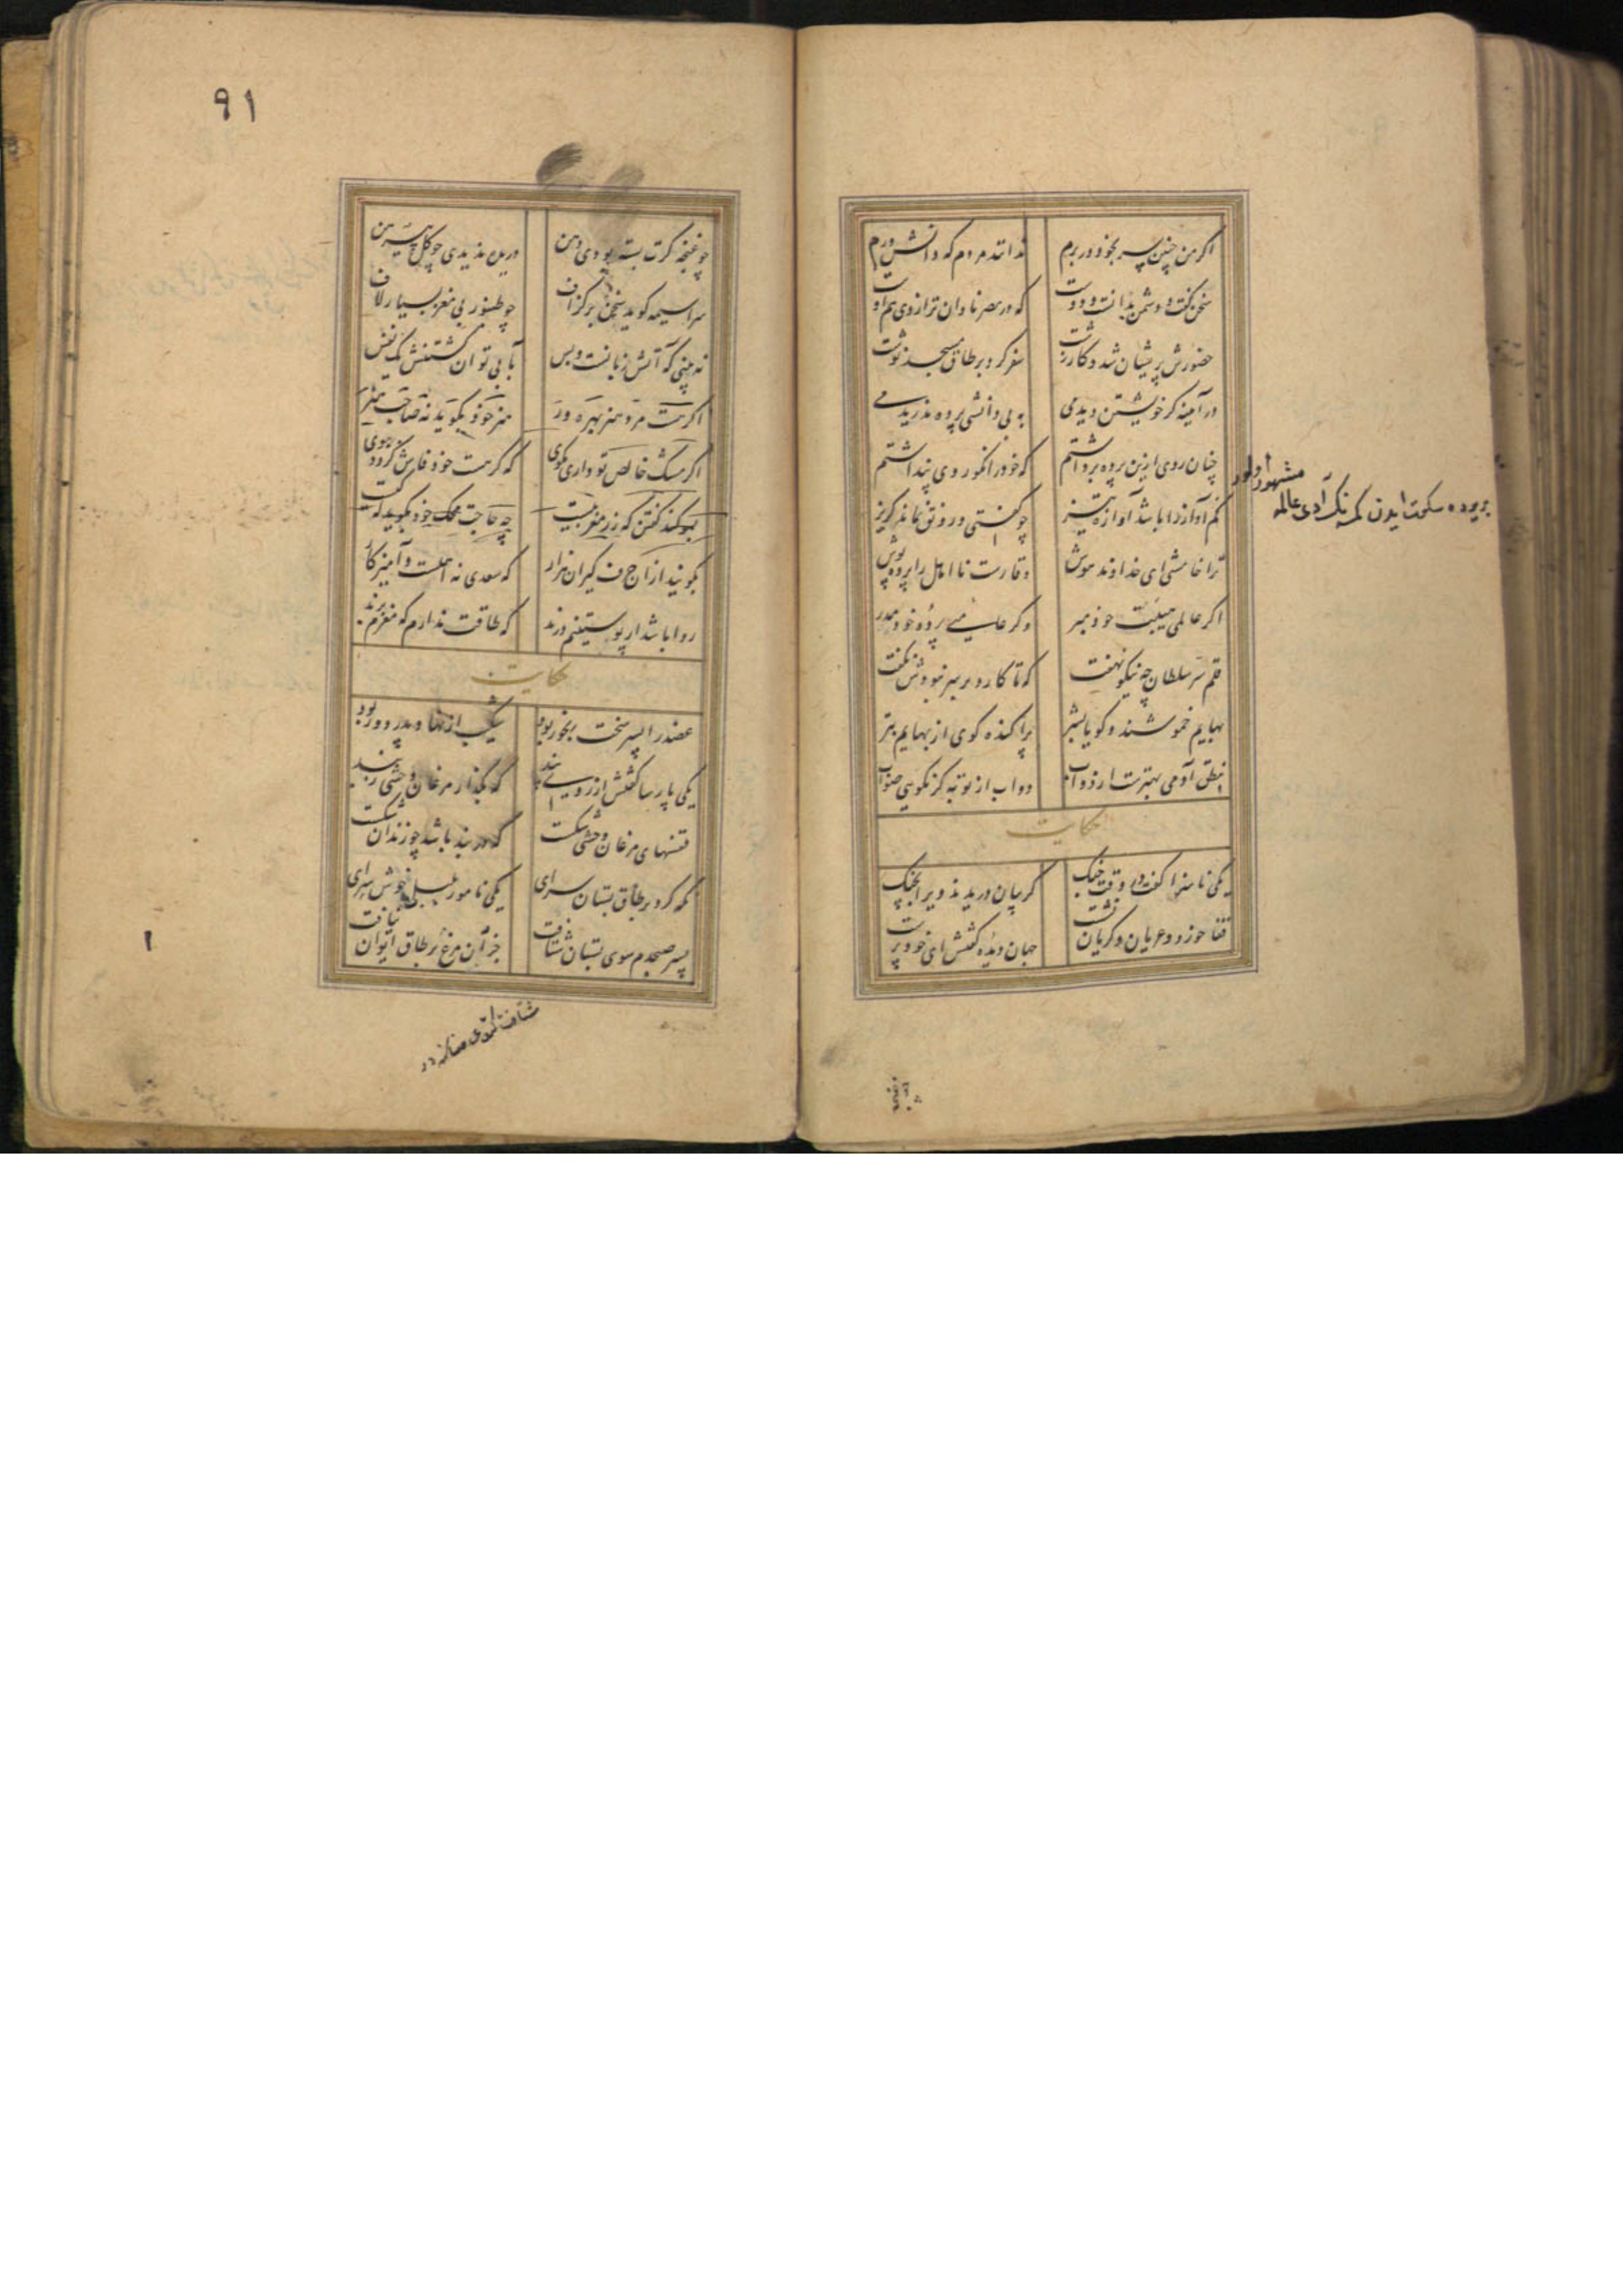 اکر من چنین سر بخود در برم
ندانند مردم که دانشورم
سخن کفت و دشمن بدانست و دوست
که در مصر نادان تر از وی هم اوست
حضورش پریشان شد و کار زشت
سفر کرد و بر طاق مسجد نوشت
در آینه کر خویشتن دیدمی
به بی دانشی پرده ندریدمی
چنان روی ازین پرده برداشتم
که خود را نکو روی پنداشتم
کم آواز را باشد آوازه تیز
چو کفتی و رونق نماند کریز
ترا خامشی ای خداوند هوش
وقارست نا اهل را پرده پوش
اکر عالمی هیبت خود مبر
وکر جاهلی پرده خود مدر
قلم سر سلطان چه نیکو نهفت
که تا کارد بر سر نبودش نکفت
بهایم خموشند و کویا بشر
پراکنده کوی از بهایم بتر
بنطق آدمی بهترست از دواب
دواب از تو به کر نکویی صواب
حکایت
یکی ناسزا کفت در وقت جنک
کریبان دریدند ویرا بچنک
قفا خورد و عریان و کریان نشست
جهان دیده کفتش ای خود پرست
مشهور اولور
چو غنچه کرت بسته بودی دهن
دریده ندیدی چو کل پیرهن
سراسیمه کوید سخن بر کزاف
چو طنبور بی مغز بسیار لاف
نه بینی که آتش زبانست و بس
بآبی توان کشتنش یک نفس
اکر هست مرد هنر بهره ور
هنر خود بکوید نه صاحب هنر
اکر مشک خالص تو داری مکوی
که کر هست خود فاش کردد ببوی
بسوکند کفتن که زر مغربیست
چه حاجت محک خود بکوید که چیست
بکویند ازاج حرف کیران هزار
که سعدی نه اهلست و آمیزکار
روا باشد ار پوستینم درند
که طاقت ندارم که مغزم برند
حکایت
عضد را پسر سخت رنجور بود
شکیب از نهاد پدر دور بود
یکی پارسا کفتش از روی پند
که بکذار مرغان وحشی ز بند
قفسهای مرغان وحشی شکست
که در بند باشد چو زندان شکست
نکه کرد بر طاق بستان سرای
یکی نامور بلبل خوش سرای
پسر صبحدم سوی بستان شتافت
جز آن مرغ بر طاق ایوان نیافت
٩١
١